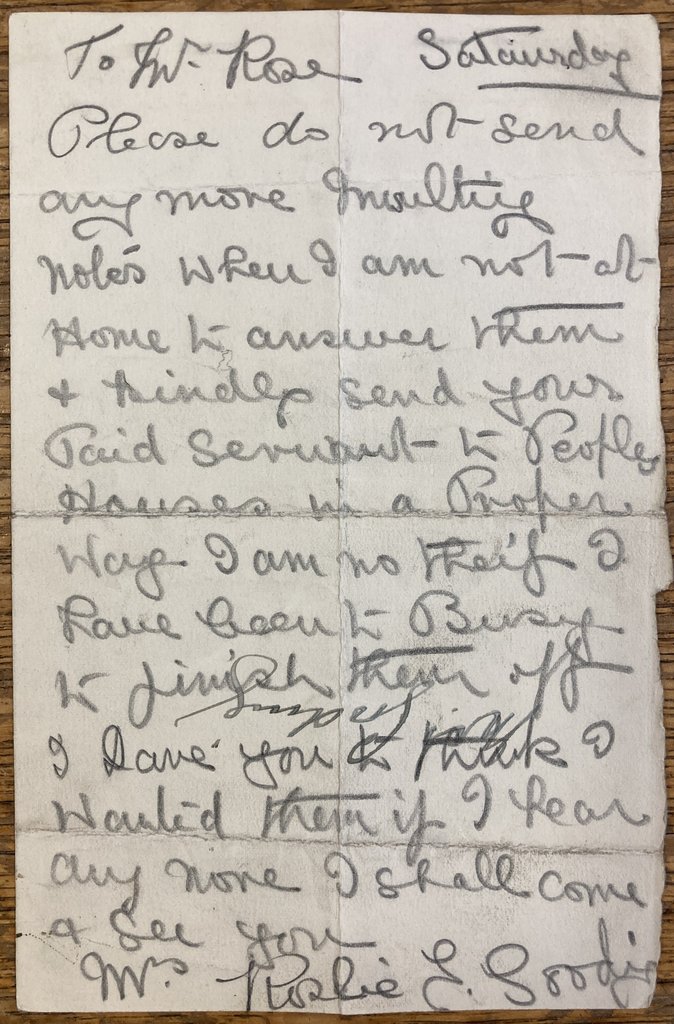 To Mr. Rose Sataurday
Please do not send
any more Insulting
notes when I am not at
Home to answer them
& kindly send your
Paid Servant to Peoples
Houses in a Proper
Way I am no theif I
have been to Busy
to finish them off
I Dare you to think I
Wanted them if I hear
any more I shall come
& See you
Mrs Roslie E.